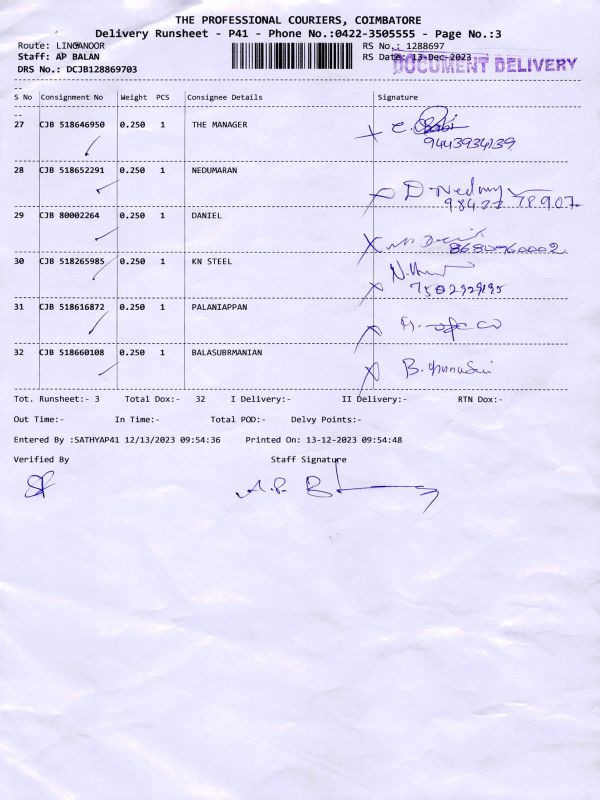 THE PROFESSIONAL COURIERS, COIMBATORE
Delivery Runsheet - P41 - Phone No.:0422-3505555 - Page No.:3
Route: LINGANOOR RS No.: 1288697
Staff: AP BALAN RS Date: 13-Dec-2023
DOCUMENT DELIVERY
DRS No.: DCJB128869703
S No Consignment No Weight PCS Consignee Details Signature
27 CJB 518646950 0.250 1 THE MANAGER
9443934139
28 CJB 518652291 0.250 1 NEDUMARAN
29 CJB 80002264 0.250 1 DANIEL
30 CJB 518265985 0.250 1 KN STEEL
7502929195
31 CJB 518616872 0.250 1 PALANIAPPAN
32 CJB 518660108 0.250 1 BALASUBRMANIAN
Tot. Runsheet:- 3 Total Dox:- 32 I Delivery:- II Delivery:- RTN Dox:-
Out Time:- In Time:- Total POD:- Delvy Points:-
Entered By :SATHYAP41 12/13/2023 09:54:36 Printed On: 13-12-2023 09:54:48
Verified By Staff Signature